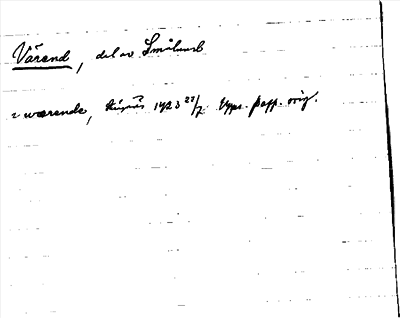 Värend, del av Småland
i wærende, 1423 22/7 Upps. papp. orig.